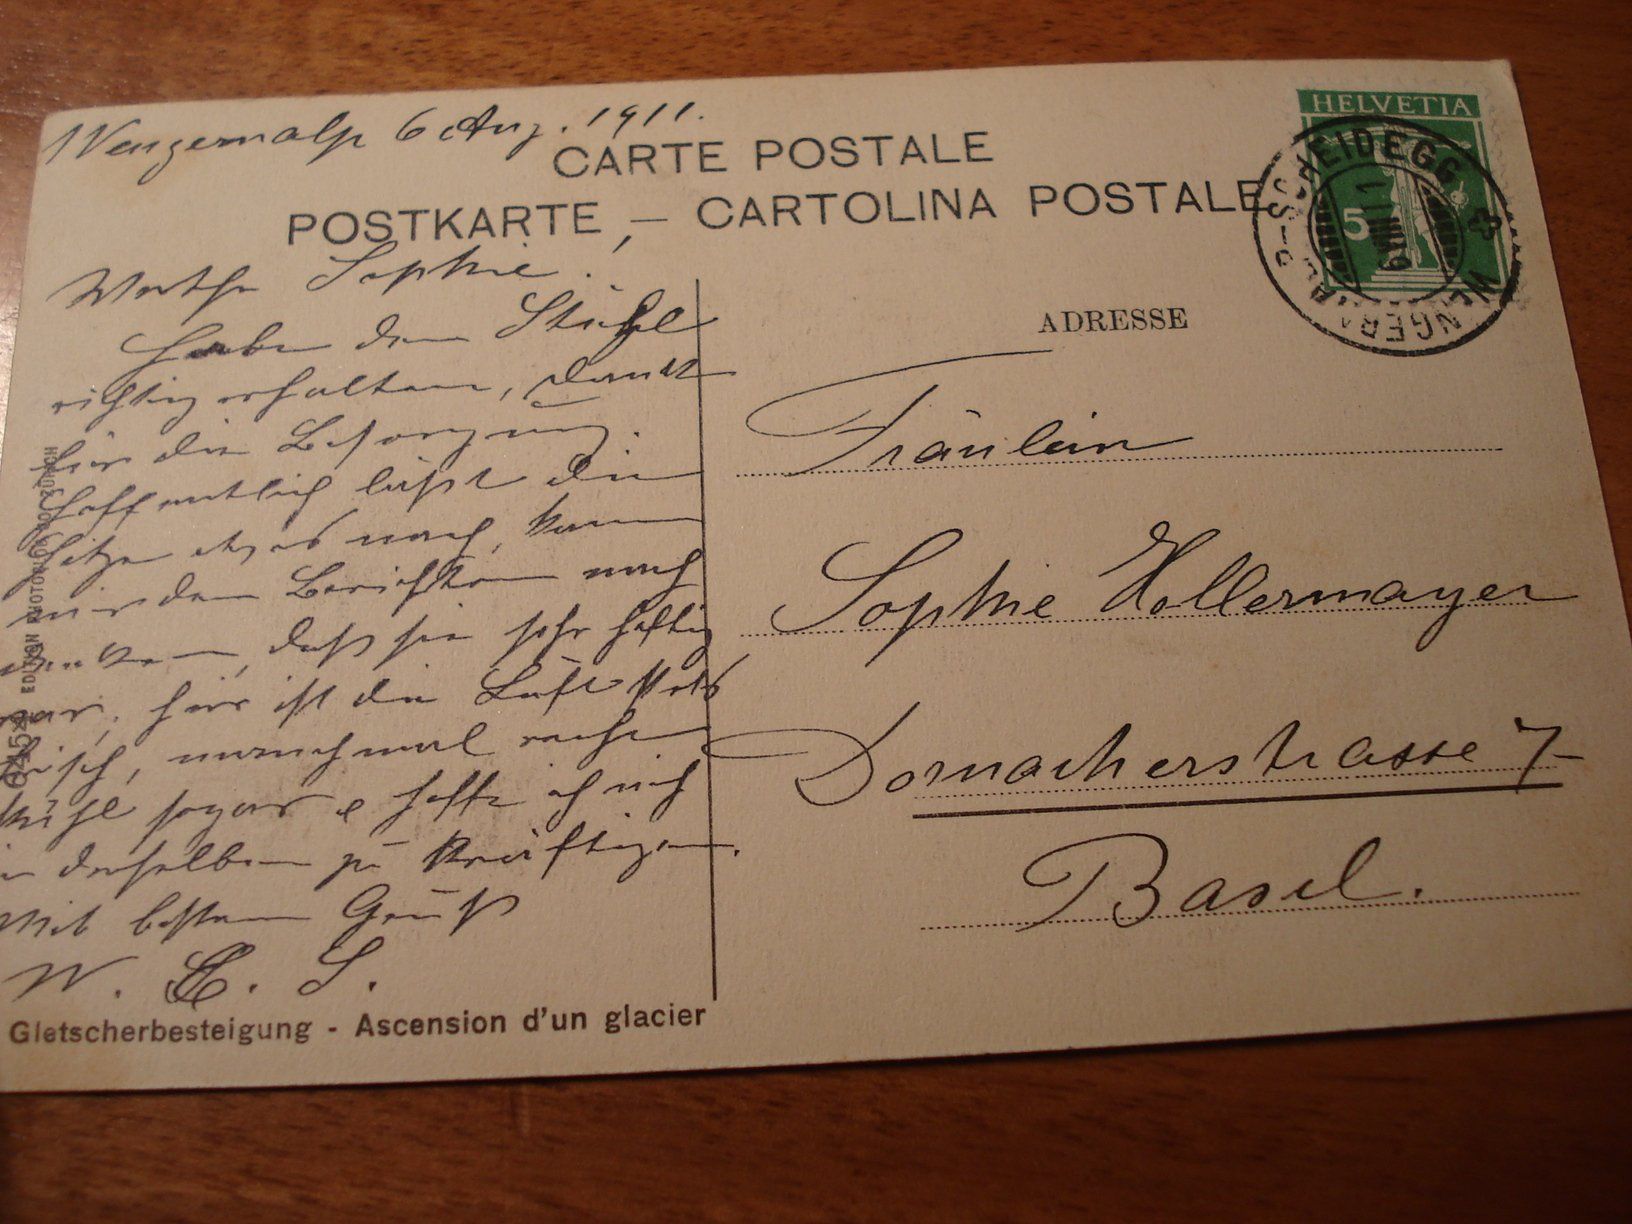 Wengernalp 6 Aug. 1911.
CARTE POSTALE
POSTKARTE – CARTOLINA POSTALE
HELVETIA
5
SCHEIDEGG
WENGERNALP
ADRESSE
Werthe Sophie!
Habe den Stuhl
richtig erhalten, Dank
für die Besorgung.
Hoffentlich läßt die
Hitze etwas nach, kann
mir den Berichten nach
denken, daß sie sehr heftig
war, hier ist die Luft stets
frisch, manchmal recht
kühl sogar & hoffe ich mich
in derselben zu kräftigen.
Mit bestem Gruß
W. E. S.
Fräulein
Sophie Hollermayer
Dornacherstrasse 7
Basel.
Gletscherbesteigung - Ascension d'un glacier
EDITION PHOTOGLOB ZÜRICH